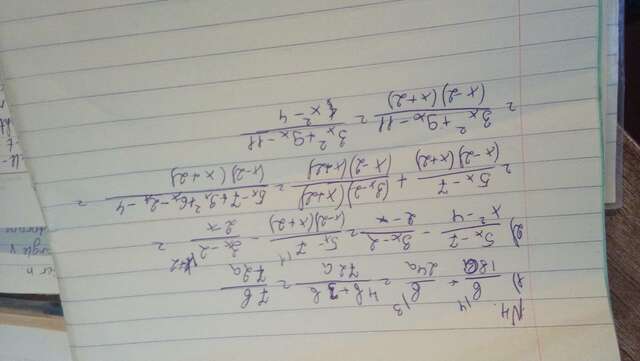 №4.
1) b/18a \4 + b/24a \3 = 4b+3b/72a = 7b/72a
2) 5x-7/x²-4 - 3x-2/2-x = 5x-7/(x-2)(x+2) - 3x-2/2-x \x+2 =
= 5x-7/(x-2)(x+2) + (3x-2)(x+2)/(x-2)(x+2) = 5x-7+3x²+6x-2x-4/(x-2)(x+2) =
= 3x²+9x-11/(x-2)(x+2) = 3x²+9x-11/x²-4